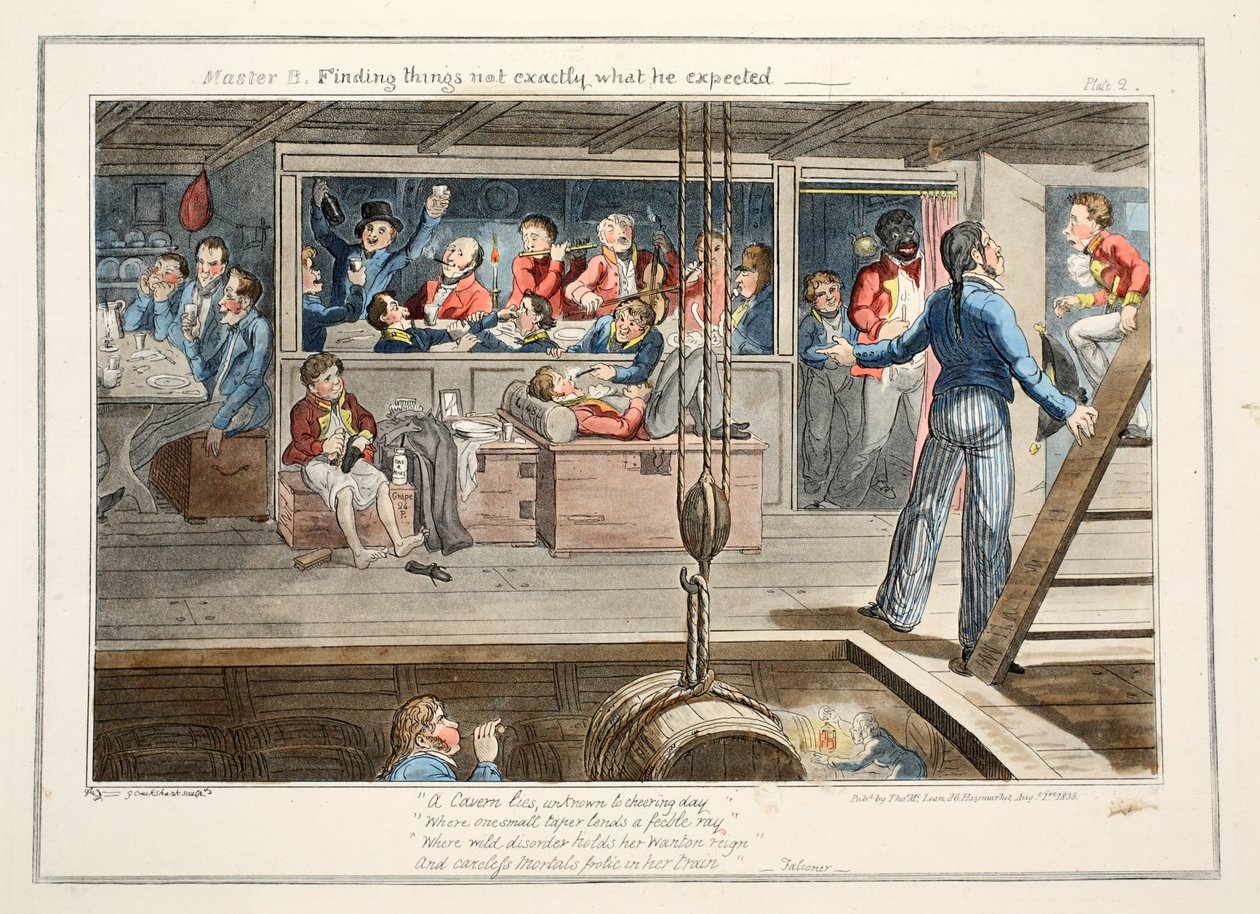 Master B. Finding things not exactly what he expected
Plate 2.
Grape
24
P.
G Cruikshank sculpt
Pubd by Thos. Mc. Lean 26, Haymarket, Augt 1st 1835.
"A Cavern lies, unknown to cheering day "
" Where one small taper lends a feeble ray "
" Where wild disorder holds her Wanton reign "
And careless Mortals frolic in her train "
Falconer